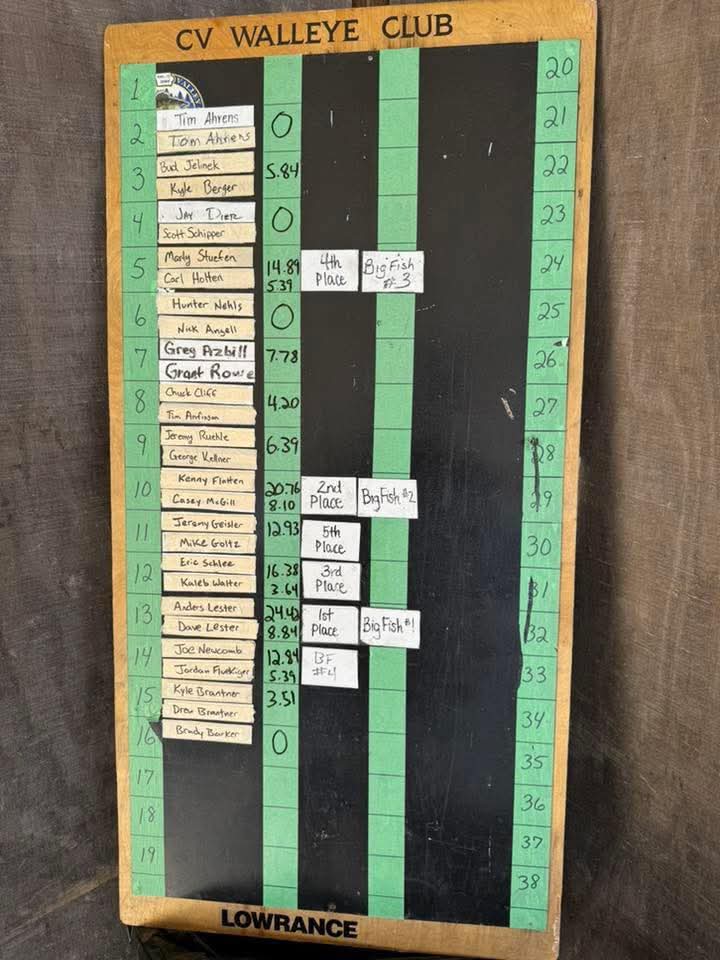 CV WALLEYE CLUB
1 20
Tim Ahrens
2 Tom Ahrens 0 21
Bud Jelinek
3 Kyle Berger 5.84 22
Jay Dier
4 Scott Schipper 0 23
Marly Stuefen
5 Carl Hotten 14.89 5.39 4th Place Big Fish #3 24
Hunter Nehls
6 Nick Angell 0 25
Greg Azbill
7 Grant Rowe 7.78 26
Chuck Cliff
8 Tim Anfinson 4.20 27
Jeremy Ruehle
9 George Kellner 6.39 28
Kenny Flatten
10 Casey McGill 20.76 8.10 2nd Place Big Fish #2 29
Jeremy Geisler
11 Mike Goltz 12.93 5th Place 30
Eric Schlee
12 Kaleb Walter 16.38 3.64 3rd Place 31
Anders Lester
13 Dave Lester 24.42 8.84 1st Place Big Fish #1 32
Joe Newcomb
14 Jordan Fluekiger 12.84 5.39 BF #4 33
Kyle Brantner
15 Drew Brantner 3.51 34
16 Brady Barker 0 35
17 36
18 37
19 38
LOWRANCE